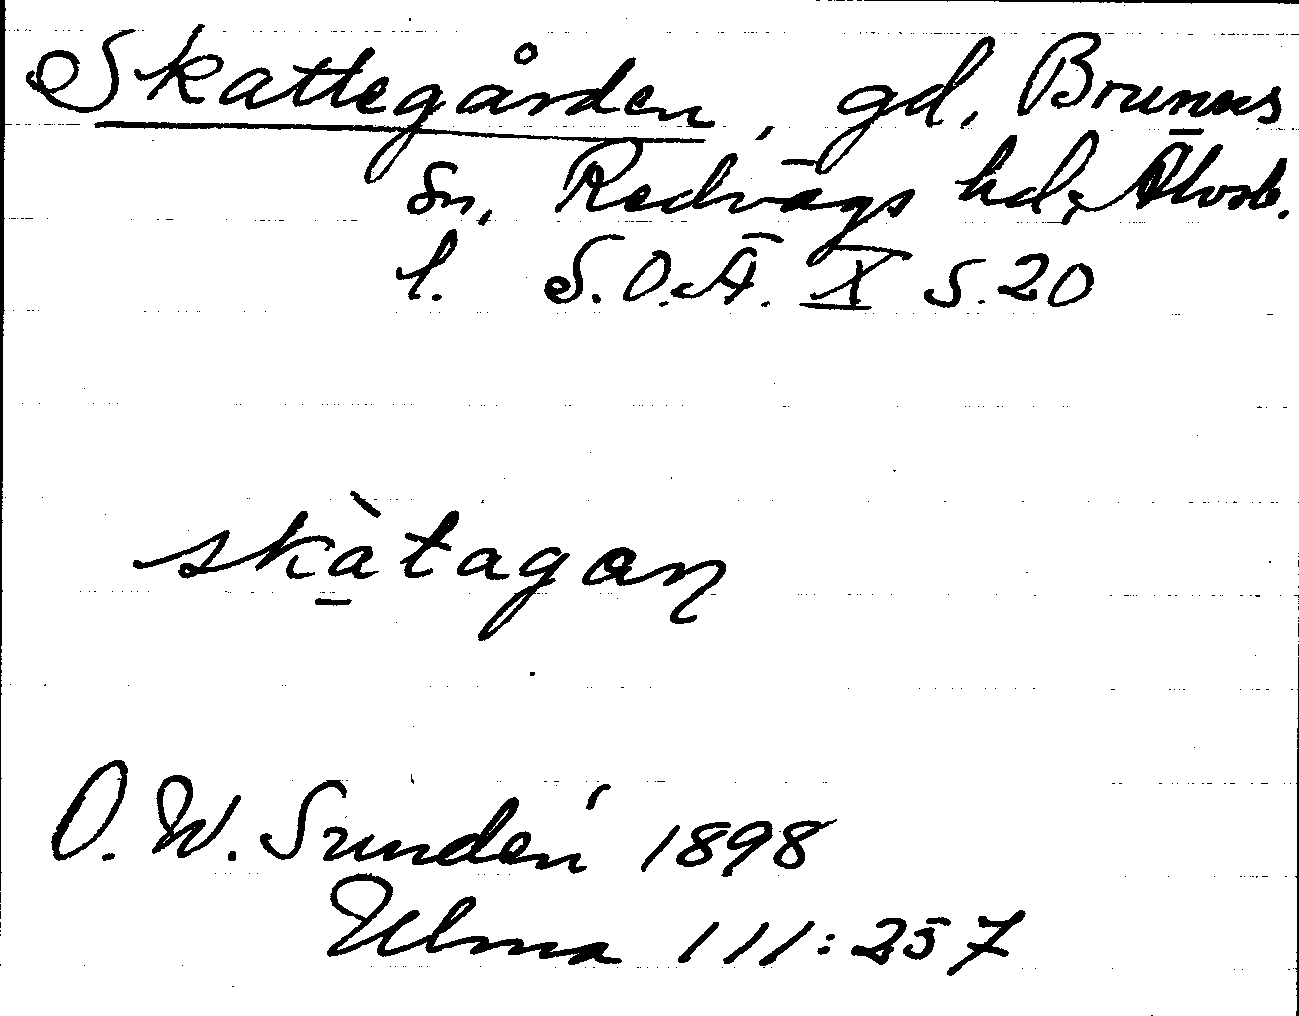 Skattegården, gd, Brunns
sn, Redvägs hd, Älvsb.
l. S.O.Ä. X s. 20
skà̱tagan
O. W. Sundén 1898
Ulma 111:257